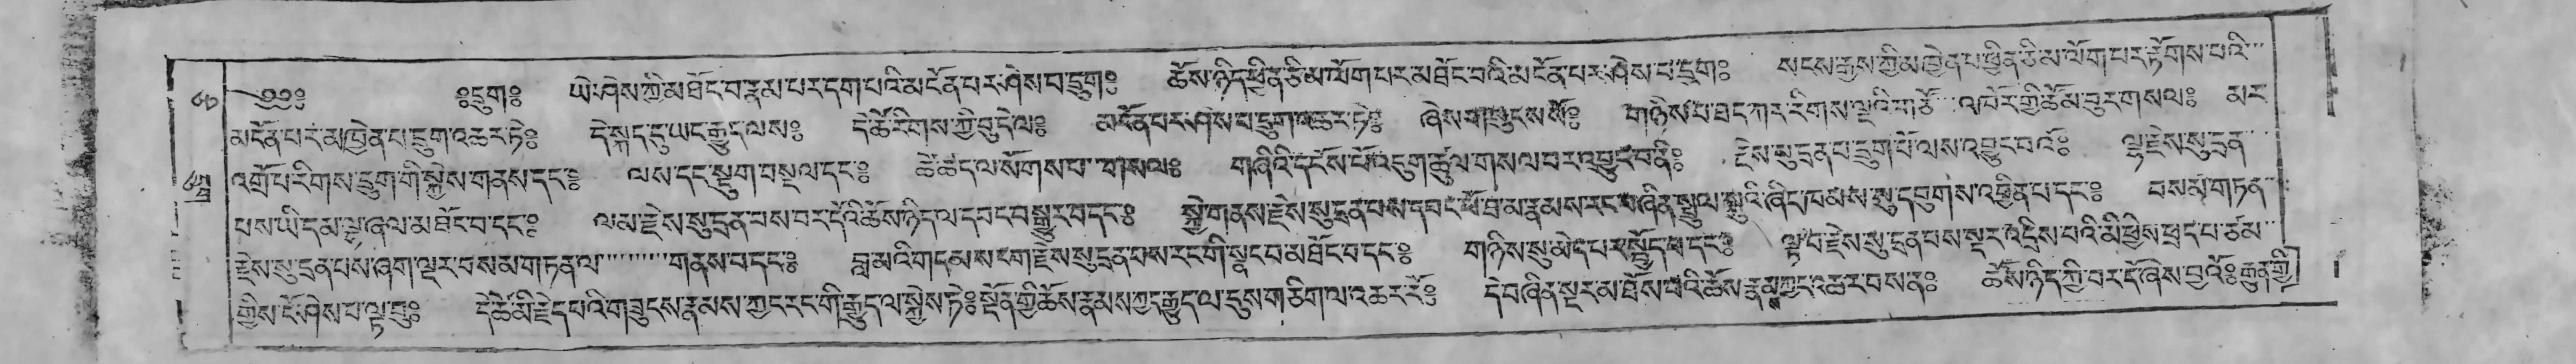 ༄༅༔ ༔དྲུག༔ ཡེ་ཤེས་ཀྱི་མཐོང་བ་རྣམ་པར་དག་པའི་མངོན་པར་ཤེས་པ་དྲུག༔ ཆོས་ཉིད་ཕྱིན་ཅི་མ་ལོག་པར་མཐོང་བའི་མངོན་པར་ཤེས་པ་དྲུག༔ སངས་རྒྱས་ཀྱི་མཁྱེན་པ་ཕྱིན་ཅི་མ་ལོག་པར་རྟོགས་པའི་
མངོན་པར་མཁྱེན་པ་དྲུག་འཆར་ཏེ༔ དེ་སྐད་དུ་ཡང་རྒྱུད་ལས༔ དེ་ཚེ་རིགས་ཀྱི་བུ་དེ་ལ༔ མངོན་པར་ཤེས་པ་དྲུག་འཆར་ཏེ༔ ཞེས་གསུངས་སོ༔ གཉིས་པ་ཐད་ཀར་རིགས་ལྔའི་གཙོ་འཁོར་གྱི་ཚོམ་བུར་གསལ༔ མར་
འགྲོ་བ་རིགས་དྲུག་གི་སྐྱེས་གནས་དང༔ ལས་དང་སྡུག་བསྔལ་དང༔ ཚེ་ཚད་ལ་སོགས་པ་གསལ༔ གཞིའི་དངོས་པོ་འདུག་ཚུལ་གསལ་བར་འབྱུང་བནི༔ རྗེས་སུ་དྲན་པ་དྲུག་པོ་ལས་འབྱུང་བའོ༔ ལྷ་རྗེས་སུ་དྲན་
པས་ཡི་དམ་ལྷ་ཞལ་མཐོང་བ་དང༔ ལམ་རྗེས་སུ་དྲན་པས་བར་དོའི་ཆོས་ཉིད་ལ་དབང་བསྒྱུར་བ་དང༔ སྐྱེ་གནས་རྗེས་སུ་དྲན་པས་དབང་པོ་ཐ་མ་རྣམས་རང་བཞིན་སྤྲུལ་སྐུའི་ཞིང་ཁམས་སུ་དབུགས་འབྱིན་པ་དང༔ བསམ་གཏན་
རྗེས་སུ་དྲན་པས་ཞག་ལྔར་བསམ་གཏན་ལ་གནས་པ་དང༔ བླ་མའི་གདམས་ངག་རྗེས་སུ་དྲན་པས་རང་གི་སྣང་བ་མཐོང་བ་དང༔ གཉིས་སུ་མེད་པར་སྤྱོད་པ་དང༔ ལྟ་བ་རྗེས་སུ་དྲན་པས་སྔར་འདྲིས་པའི་མི་ཕྱིས་ཕྲད་པ་ཙམ་
གྱིས་ངོ་ཤེས་པ་ལྟ་བུ༔ དེ་ཚེ་མི་རྗེད་པའི་གཟུངས་རྣམས་ཀྱང་རང་གི་རྒྱུད་ལ་སྐྱེས་ཏེ༔ སྔོན་གྱི་ཆོས་རྣམས་ཀྱང་རྒྱུད་ལ་དུས་གཅིག་ལ་འཆར་རོ༔ དེ་བཞིན་སྔར་མ་ཐོས་པའི་ཆོས་རྣམས་ཀྱང་འཆར་བས་ན༔ ཆོས་ཉིད་ཀྱི་བར་དོ་ཞེས་བྱའོ༔ རྒྱུན་གྱི